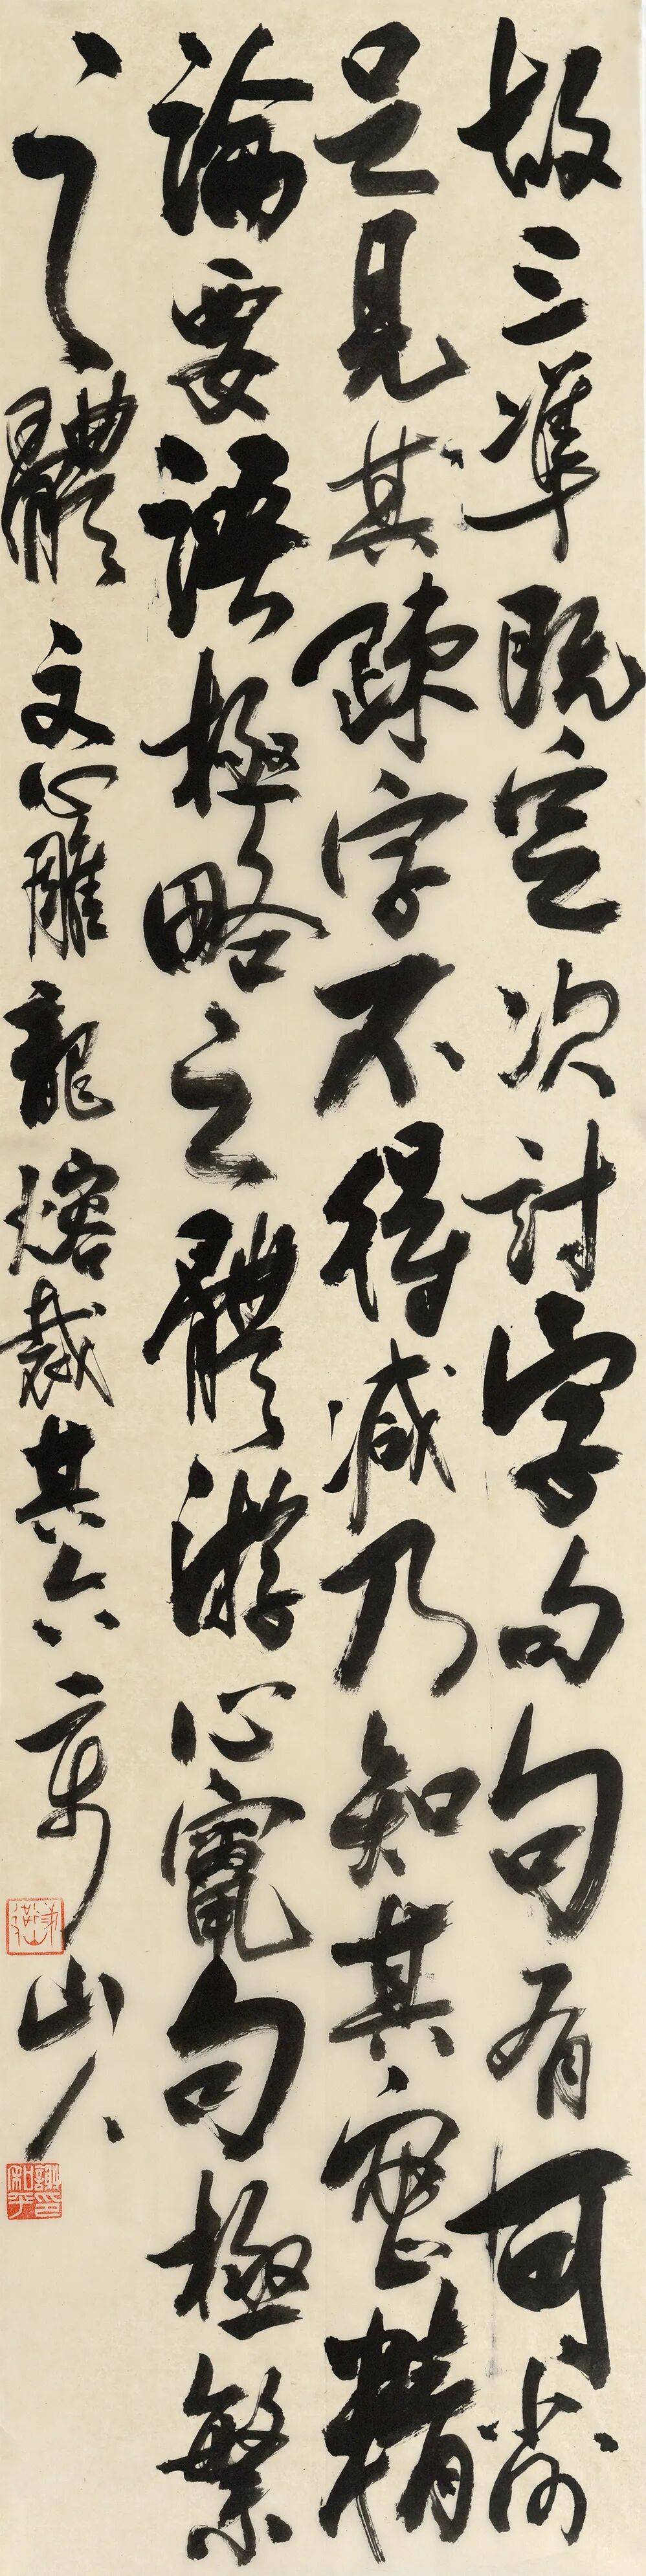 故三準既定次討字句句有可削
足見其疎字不得減乃知其密精
論要語極略之體游心竄句極繁
之體 文心雕龍熔裁其六 山人
謝印和平